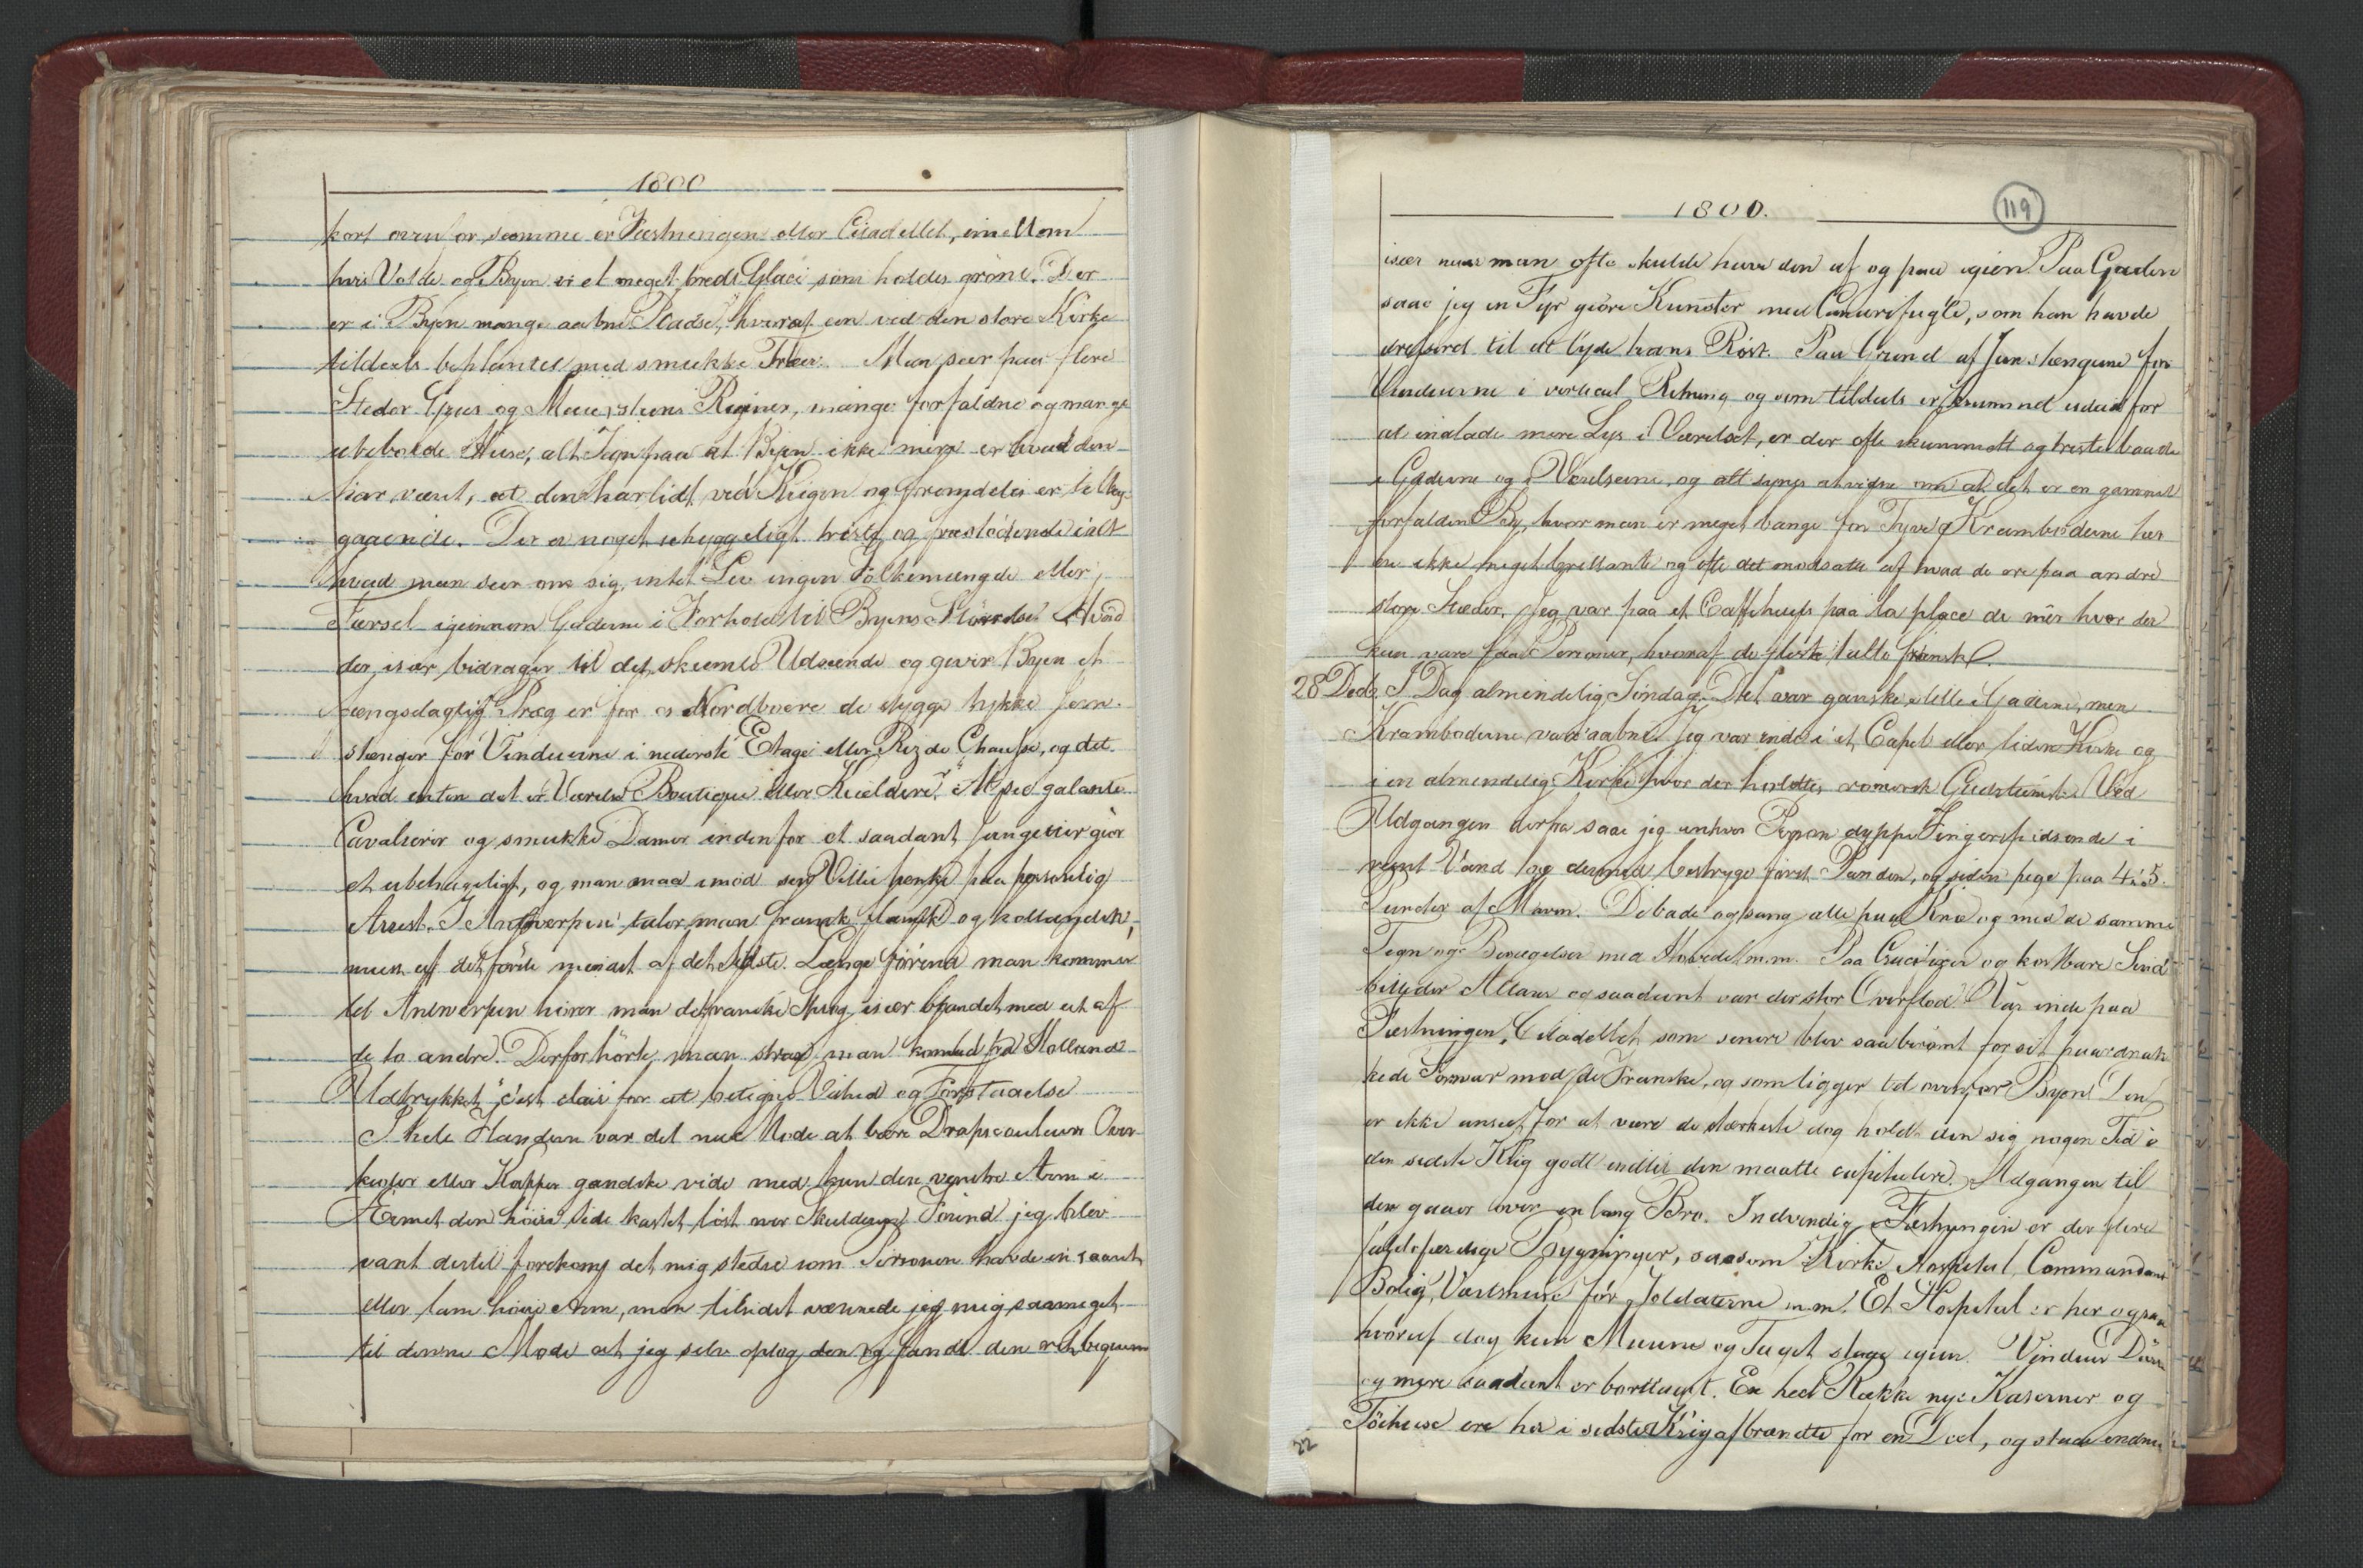 1800
kort oven for samme er Fæstningen eller Citadellet, imellem
hvis Volde og Byen er et meget bredt Glaci som holdes grönt. Der
er i Byen mange aabne Pladse, hvoraf een ved den store Kirke
tildeels beplantet med smukke Træer. Man seer paa flere
Steder Gruus og Muursteens Ruiner, mange forfaldne og mange
ubeboede Huse, alt Tegn paa at Byen ikke mere er hvad den
har været, at den har lidt ved Krigen og fremdeles er tilbage
gaaende. Der er noget uhyggeligt tristy og frastödende i alt
hvad man seer om sig, intet Liv ingen Folkemængde eller
Færsel igiennem Gaderne i Forhold til Byens Störrelse. Hvad
der især bidrager til det skumle Udseende og giver Byen et
Fængsdagtigt Præg er for os Nordboere de stygge tykke Jern-
stænger for Vinduerne i nederste Etage eller Rez de Chausse, og det
hvad enten det er Værelser Boutiquer eller Kieldere. At see galante
Cavalierer og smukke Damer indenfor et saadant Fangetier giör
et ubehageligt, og man maa imod sin Villie tænke paa personlig
Arrest. I Antwerpen taler man fransk flamsk og hollandsk,
meest af det förste mindst af det sidste. Længe förend man kommer
til Antwerpen hörer man det franske Sprog især blandet med et af
de to andre. Derfor hörte man strax man kom ind fra Holland
Udtrykket "c'est clair for at betegne Vished og Forstaaelse
I hele Flandern var det nu Mode at bære Drapscouleurs Over
kioler eller Kapper gandske vide med kun den venstre Arm i
Ærmet den höire Side kastet löst over Skulderen. Förend jeg blev
vant dertil forekom det mig stedse som Personen havde en saaret
eller lam höire Arm, men tilsidst vænnede jeg mig saameget
til denne Mode at jeg selv optog den og fandt den ret bequem
1800.
119
især naar man ofte skulde have den af og paa igien. Paa Gaden
saae jeg en Fyr giöre Kunster med Canarifugle, som han havde
dresseret til at lyde hans Röst. Paa Grund af Jernstængerne for
Vinduerne i vertical Retning og som tildeels er krummet udad for
at indlade mere Lys i Værelset, er der ofte skummelt og trist baade
i Gaderne og Værelserne, og alt synes at vidne om at det er en gammel
forfalden By, hvor man er meget bange for Tyve. Kramboderne her
ere ikke meget brillante og ofte det modsatte af hvad de ere paa andre
store Stæder. Jeg var paa et Caffehuus paa la place de mér hvor der
kun vare faa Personer, hvoraf de fleste talte fransk.
28 Decb. I Dag almindelig Söndag. Det var ganske stille i Gaderne, men
Kramboderne vare aabne. Jeg var inde i et Capel eller liden Kirke og
i en almindelig Kirke hvor der holdtes romersk Gudstieneste. Ved
Udgangen derfra saae jeg enhver Person dyppe Fingerspidserne i
reent Vand og dermed bestryge förist Panden, og siden pege paa 4 á 5
Puncter af Maven. De bade og sang alle paa Knæ og med de samme
Tegn og Bevægelser med Hovedet m.m. Paa Crucifixer og kostbare Sind
billeder Altare og saadant var der stor Overflod. Var inde paa
Fæstningen, Citadellet, som senere blev saa berömt for sit haardnak
kede Forsvar mod de Franske, og som ligger tæt ovenfor Byen. Den
er ikke anseet for at være de stærkeste dog holdt den sig nogen Tid i
den sidste Krig godt indtil den maatte capitulere. Adgangen til
den gaaer over en lang Bro. Indvendig i Fæstningen er der flere
faldefærdige Bygninger, saasom Kirke Hospital, Commandant
Bolig, Værtshuse for Soldaterne m.m. Et Hospital er her ogsaa
hvoraf dog kun Murene og Taget staae igien. Vinduer Döre
og mere saadant er borttaget. En heel Række nye Kaserner og
Töihuse ere her i sidste Krig afbrændte for en Deel, og staae endnu
22